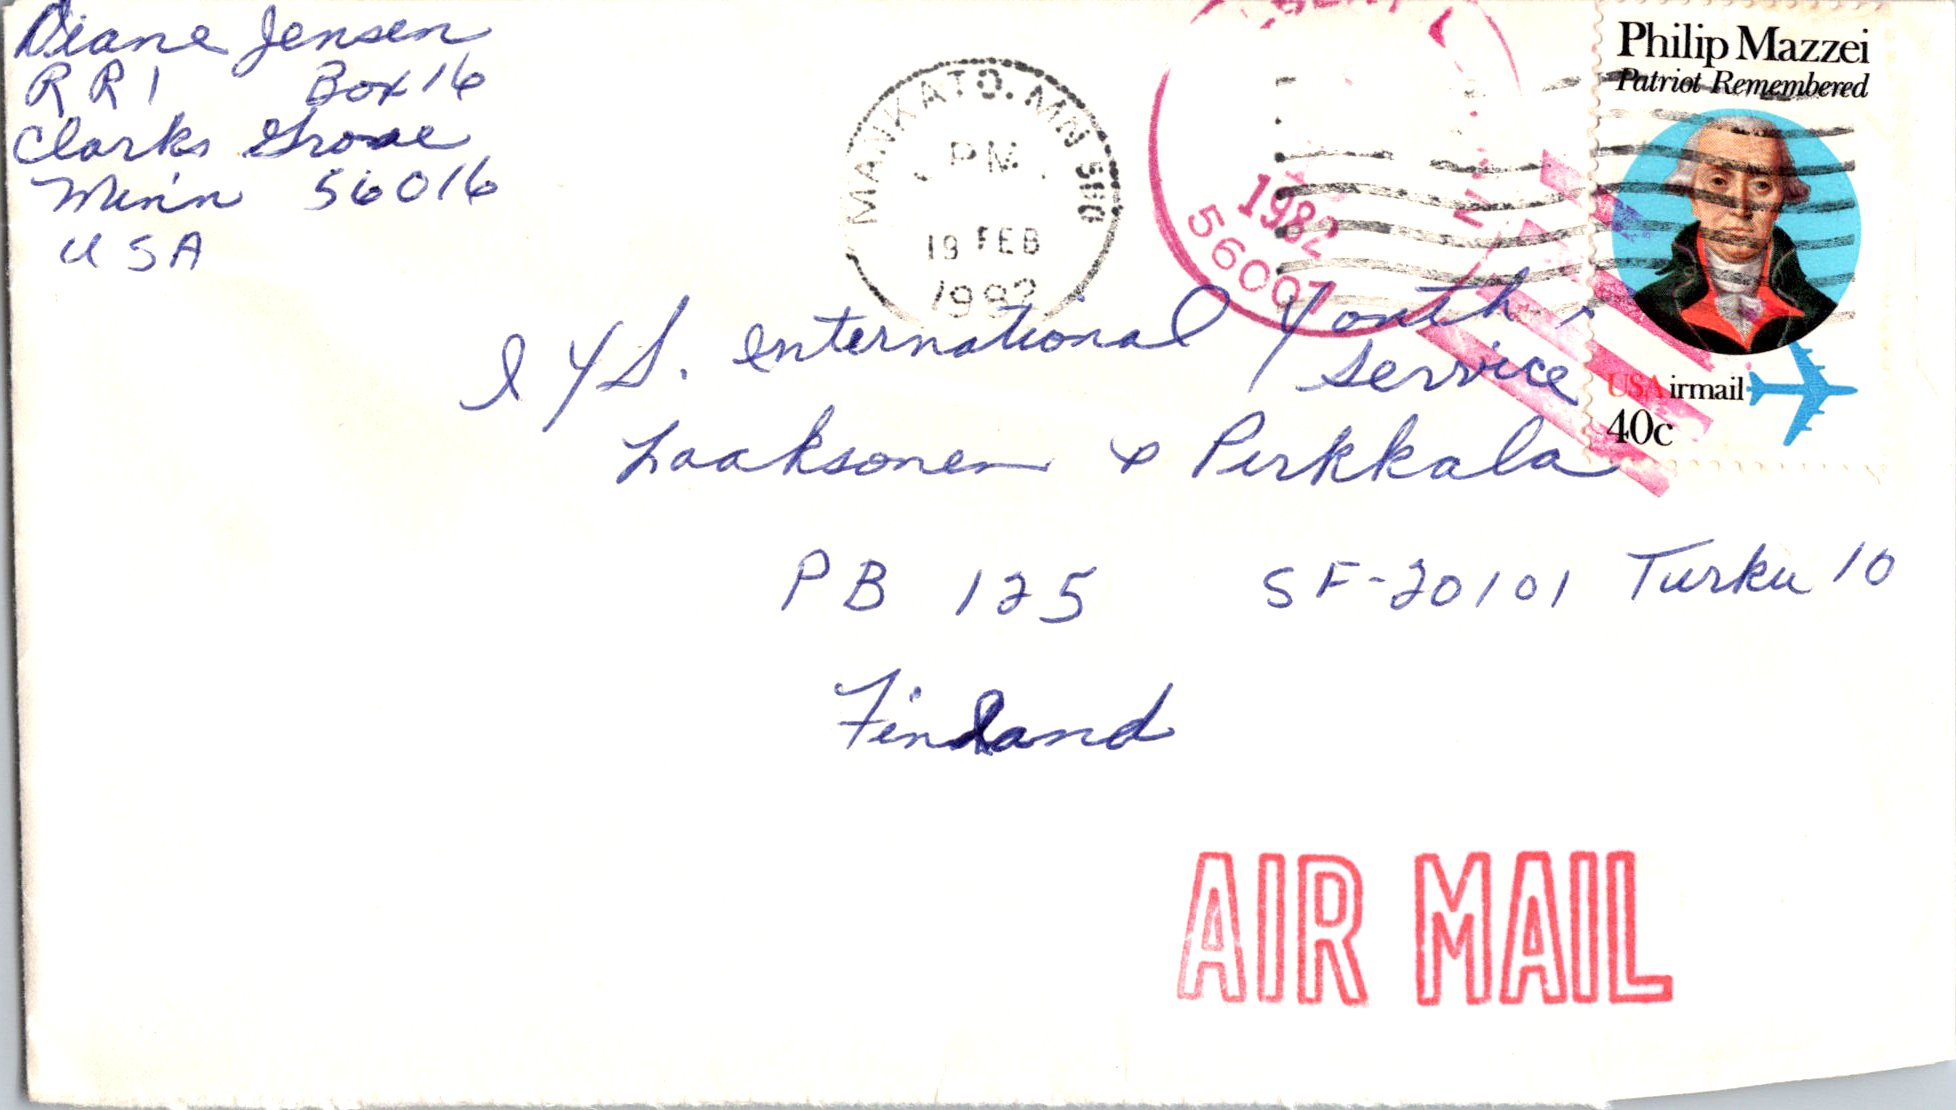 Diane Jensen
RR 1 Box 16
Clarks Grove
Minn 56016
USA
MANKATO, MN 560
PM
19 FEB
1982
1982
56007
Philip Mazzei
Patriot Remembered
USAirmail
40c
IYS. International Youth
Service
Laaksonen & Pirkkala
PB 125 SF-20101 Turku 10
Finland
AIR MAIL